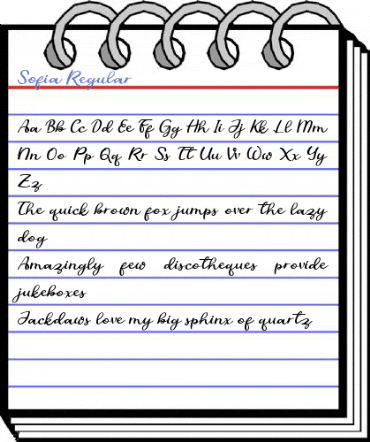 Sofia Regular
Aa Bb Cc Dd Ee Ff Gg Hh Ii Jj Kk Ll Mm
Nn Oo Pp Qq Rr Ss Tt Uu Vv Ww Xx Yy
Zz
The quick brown fox jumps over the lazy
dog
Amazingly few discotheques provide
jukeboxes
Jackdaws love my big sphinx of quartz